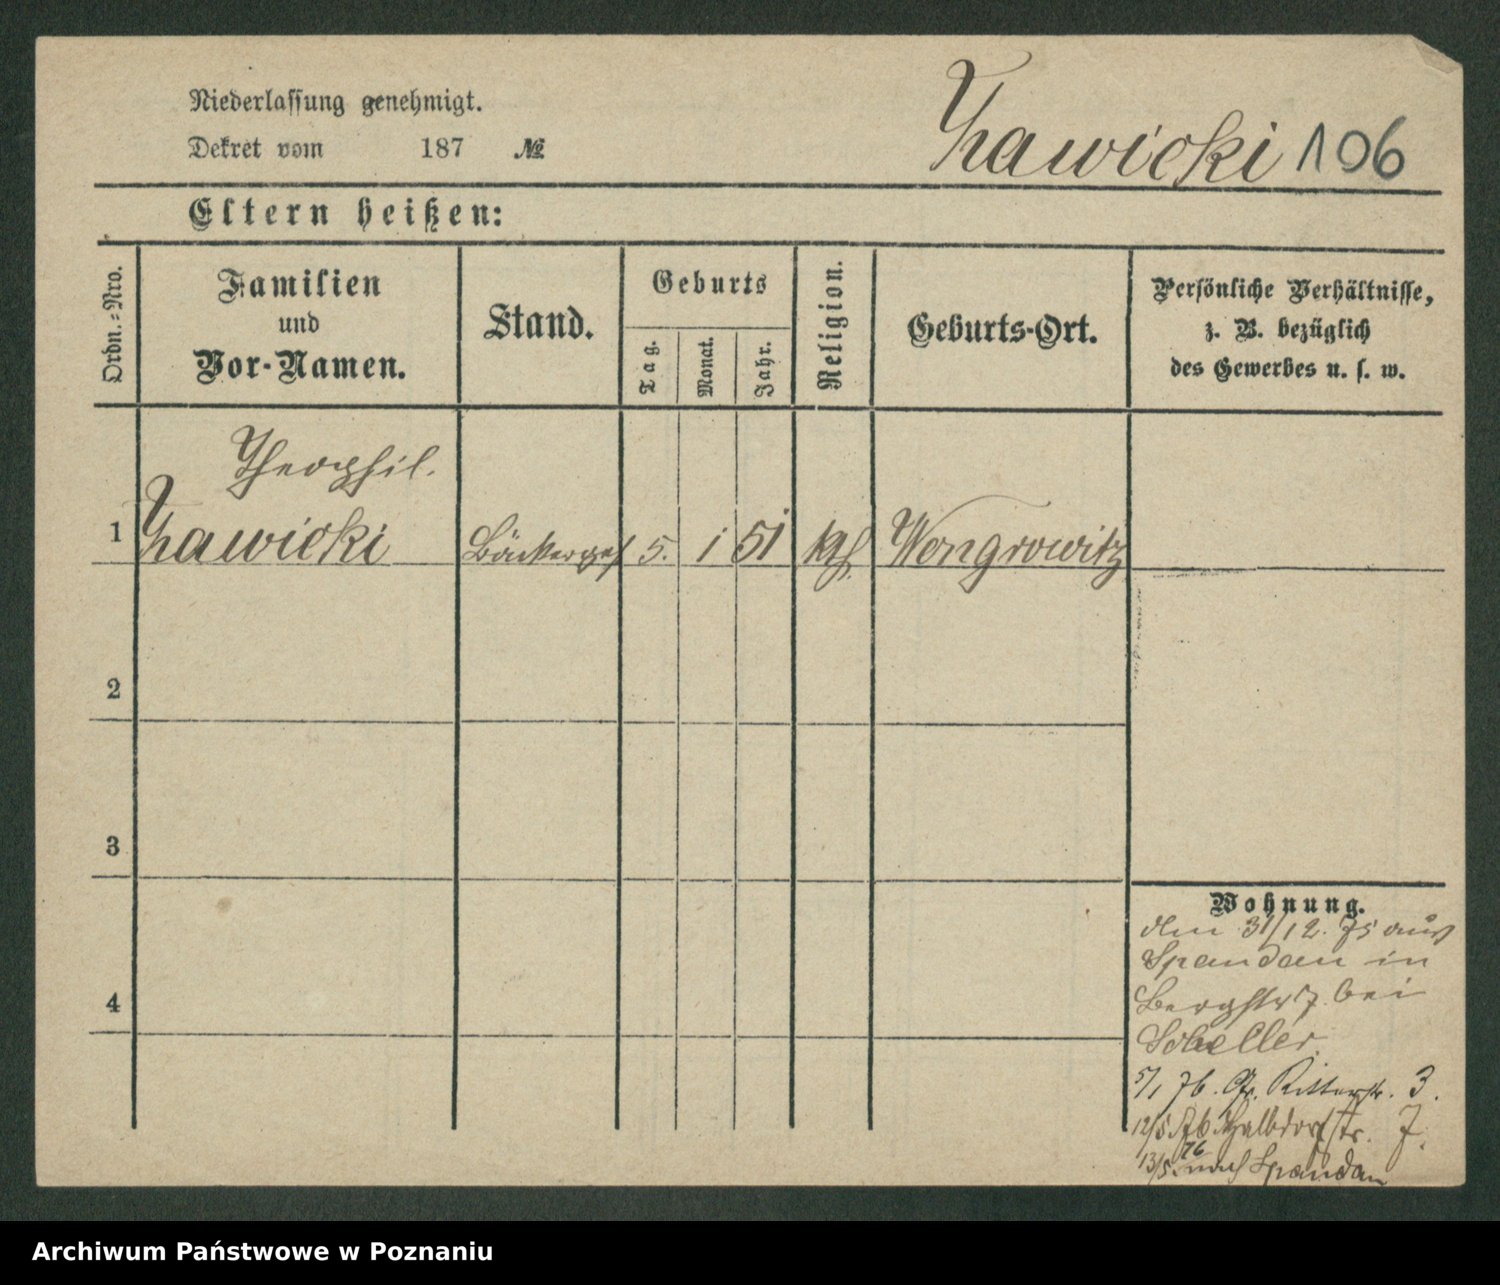 Niederlassung genehmigt.
Dekret vom 187 №
Zawicki 106
Eltern heißen:
Ordn.-Nro.
Familien
und
Vor-Namen.
Stand.
Geburts
Tag.
Monat.
Jahr.
Religion.
Geburts-Ort.
Persönliche Verhältnisse,
z. B. bezüglich
des Gewerbes u. s. w.
Theophil.
1 Zawicki Bäckerges 5. 1 51 kth. Wongrowitz
2
3
4
Wohnung.
den 31/12. 75 aus
Spandau in
Bergstr 7. bei
5/1 76. Gr. Ritterstr. 3.
12/5 76 Halbdorfstr. 7.
13/5. 76 nach Spandau
Archiwum Państwowe w Poznaniu